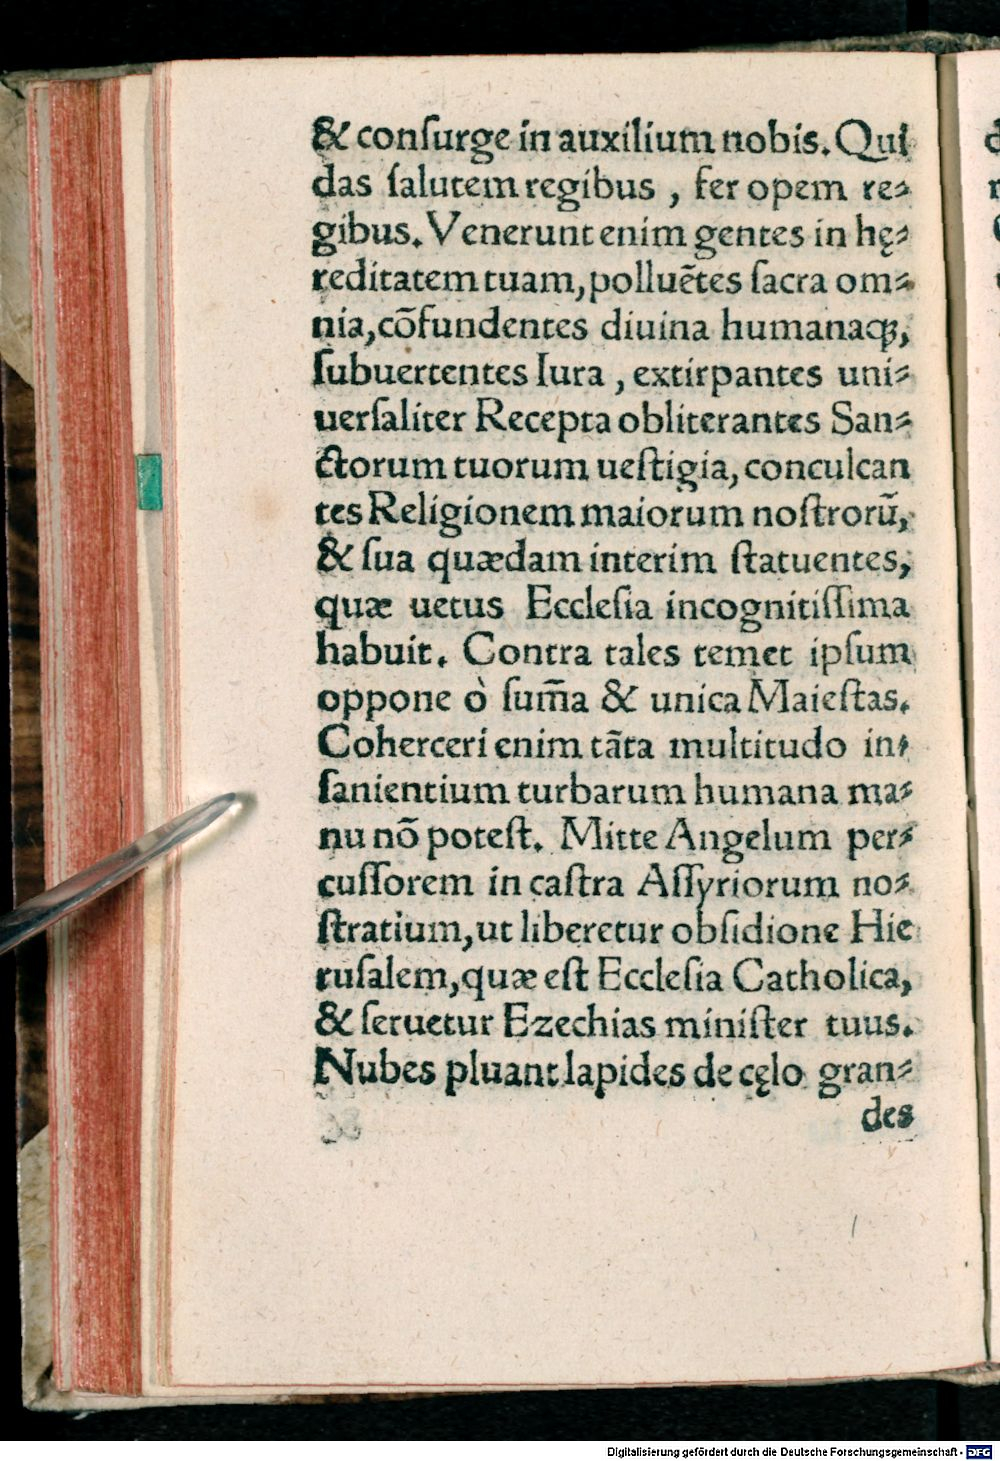 & conſurge in auxilium nobis. Qui
das ſalutem regibus , fer opem re⸗
gibus. Venerunt enim gentes in hę⸗
reditatem tuam, polluētes ſacra om⸗
nia, cōfundentes diuina humanaqꝫ,
ſubuertentes Iura , extirpantes uni⸗
uerſaliter Recepta obliterantes San⸗
ctorum tuorum ueſtigia, conculcan
tes Religionem maiorum noſtrorū,
& ſua quædam interim ſtatuentes,
quæ uetus Eccleſia incognitiſſima
habuit. Contra tales temet ipſum
oppone ò ſum̄a & unica Maieſtas.
Coherceri enim tāta multitudo in⸗
ſanientium turbarum humana ma⸗
nu nō poteſt. Mitte Angelum per⸗
cuſſorem in caſtra Aſſyriorum no⸗
ſtratium, ut liberetur obſidione Hie
ruſalem, quæ eſt Eccleſia Catholica,
& ſeruetur Ezechias miniſter tuus.
Nubes pluant lapides de cęlo gran⸗
des
Digitalisierung gefördert durch die Deutsche Forschungsgemeinschaft - DFG